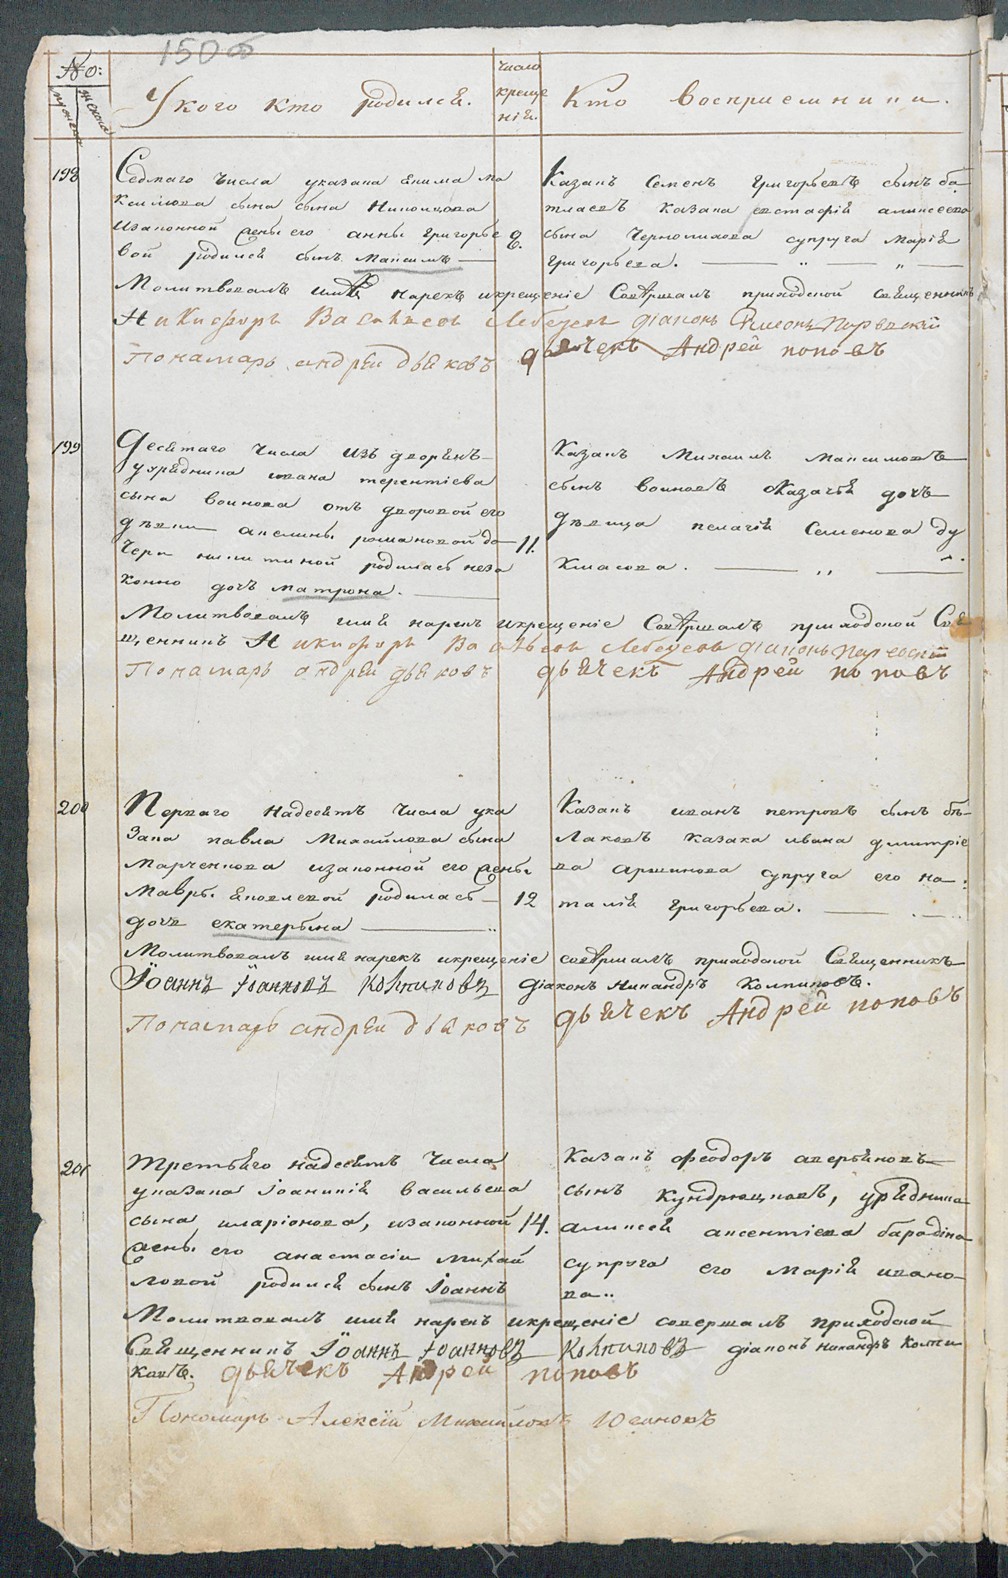 150 об
№:
мужеска
женска
У кого кто родился.
Число
креще
нія.
Кто восприемники.
198
Седмаго числа указана Екима Ма
ксимова сына Никонцова
изаконной жены его анны григорье
вой родился сынъ Максимъ
8.
Казакъ Семенъ Григорьевъ сынъ ба
тлаевъ казака евстафія аликсеева
сына Черноликова супруга Марія
григорьева.
Молитвовалъ имя нарекъ икрещеніе Совершалъ приходской священникъ
Никифоръ Васильевъ Лебедевъ діаконъ Симеонъ
Понамарь андреи дьяковъ дьячекъ Андрей поповъ
199
Десятаго числа изъ дворянъ
урядника ивана терентіева
сына воинова отъ дворовой его
дѣвки акелины романовой до
чери никитиной родилась неза
конно дочь матрона.
11.
Казакъ Михаилъ Максимовъ
сынъ воиновъ Казачья дочь
дѣвица пелагія Семенова ду
кмасова.
Молитвовалъ имя нарекъ икрещеніе Совершалъ приходской Свя
щенникъ Никифоръ Васильевъ Лебедевъ діаконъ
Понамарь андреи дьяковъ дьячекъ Андрей поповъ
200
Перваго надесять числа ука
зака павла Михайлова сына
Марченкова изаконной его жены
Мавры Яковлевой родилась
дочь екатерина
12
Казакъ иванъ петровъ сынъ бѣ
лаковъ казака ивана дмитріе
ва аршинова супруга его на
талія григорьева.
Молитвовалъ имя нарекъ икрещеніе совершалъ приходской Священникъ
Іоаннъ Іоанновъ Колпиковъ діаконъ Никандръ Колпиковъ.
Понамарь андреи дьяковъ дьячекъ Андрей поповъ
201
Третьяго надесять числа
указака Іоанникія васильева
сына иларіонова, изаконной
жены его анастасіи михай
ловой родился сынъ Іоаннъ
14.
Казакъ феодоръ аверьяновъ
сынъ Кундрюцковъ, урядника
аликсея аксентіева барадина
супруга его Марія ивано
ва..
Молитвовалъ имя нарекъ икрещеніе совершалъ приходской
Священникъ Іоаннъ Іоанновъ Колпиковъ діаконъ никандръ Колпи
ковъ. дьячекъ Андрей поповъ
Пономарь Алексій Михайловъ Югановъ